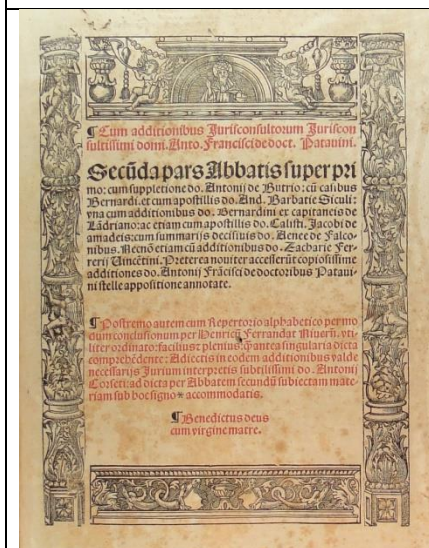 ¶ Cum additionibus Jurisconsultorum Juriscon
sultissimi domi. Anto. Francisci de doct. Patauini.
Secūda pars Abbatis super pri
mo: cum suppletione do. Antonij de Butrio: cū casibus
Bernardi. et cum apostillis do. And. Barbatie Siculi:
vna cum additionibus do. Bernardini ex capitaneis de
Lādriano: ac etiam cum apostillis do. Calisti. Jacobi de
amadeis: cum summarijs decisiuis do. Aenee de Falco⸗
nibus. Necnō etiam cū additionibus do. Zacharie Fer⸗
rerij Uincētini. Preterea nouiter accesserūt copiosissime
additiones do. Antonij Frācisci de doctoribus Pataui⸗
ni stelle appositione annotate.
¶ Postremo autem cum Repertorio alphabetico per mo
dum conclusionum per Henricū Ferrandat Niuern̄. vti⸗
liter ordinato: facilius et plenius q̄ antea singularia dicta
comprehēdente: Adiectis in eodem additionibus valde
necessarijs Jurium interpretis subtilissimi do. Antonij
Corseti: ad dicta per Abbatem secundū subiectam mate⸗
riam sub hoc signo * accommodatis.
¶ Benedictus deus
cum virgine matre.